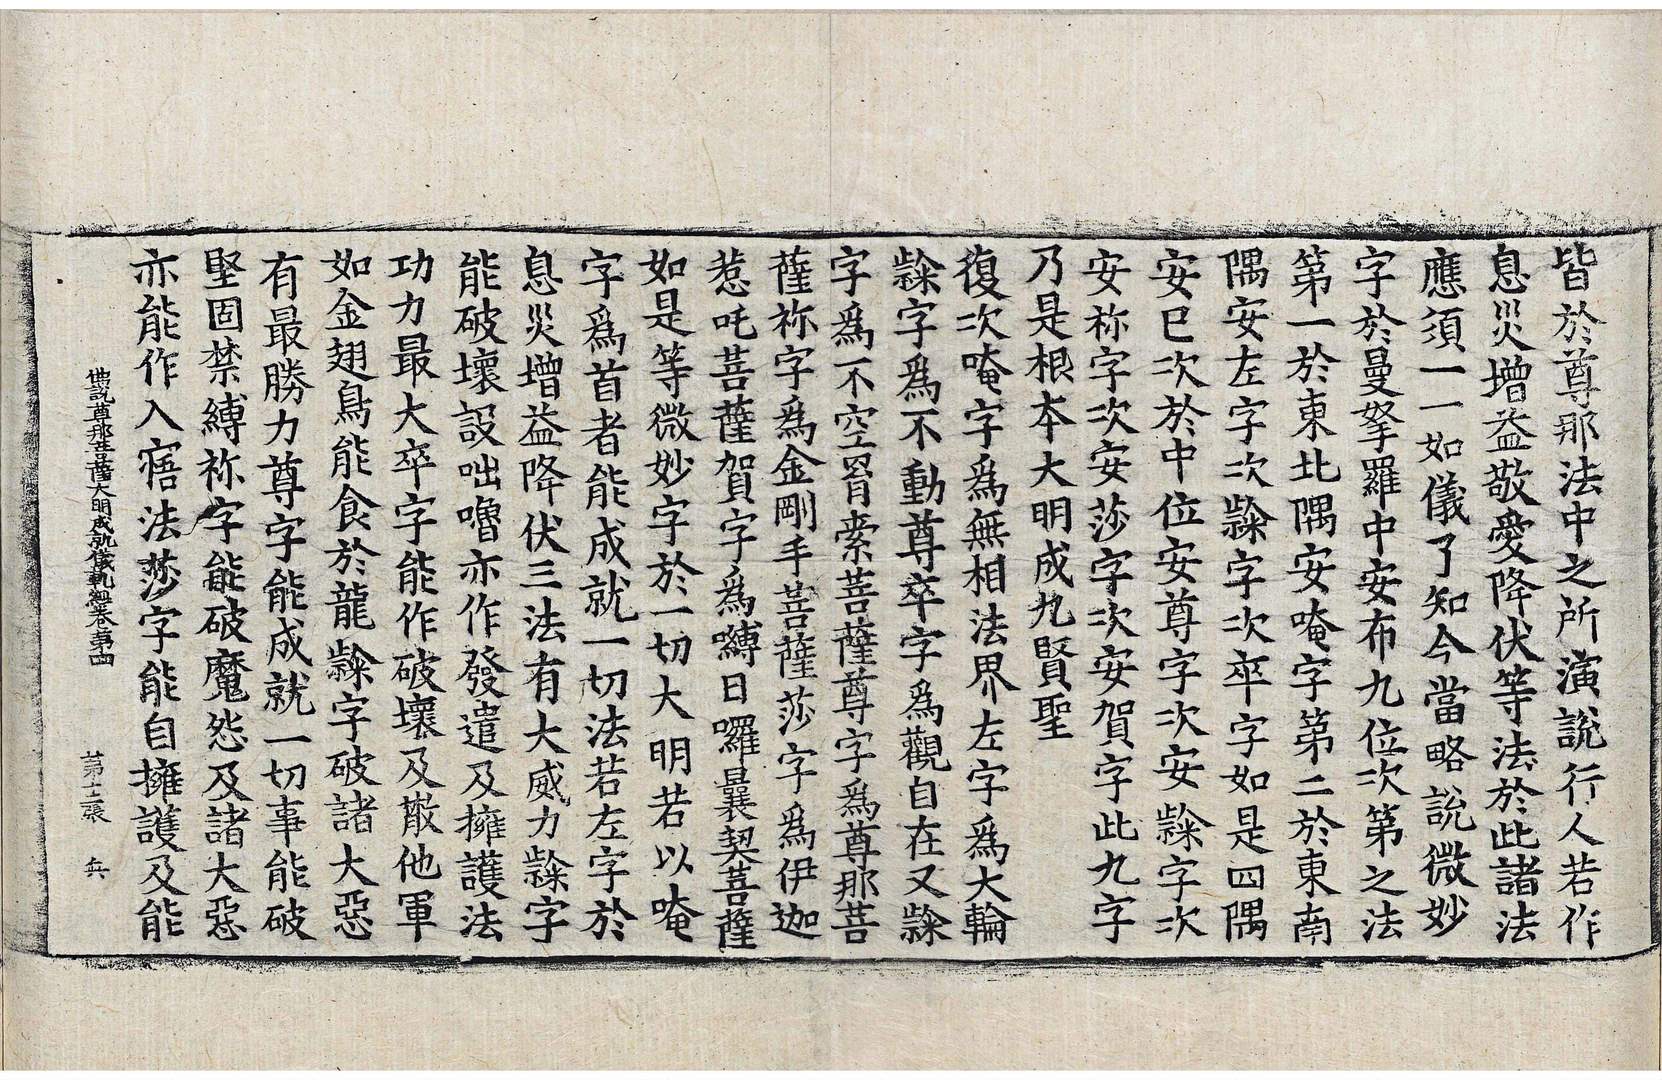 皆於尊那法中之所演說行人若作
息災增益敬愛降伏等法於此諸法
應須一一如儀了知今當略說微妙
字於曼拏羅中安布九位次第之法
第一於東北隅安唵字第二於東南
隅安左字次隸字次卒字如是四隅
安已次於中位安尊字次安隸字次
安祢字次安莎字次安賀字此九字
乃是根本大明成九賢聖
復次唵字爲無相法界左字爲大輪
隸字爲不動尊卒字爲觀自在又隸
字爲不空罥索菩薩尊字爲尊那菩
薩祢字爲金剛手菩薩莎字爲伊迦
惹吒菩薩賀字爲嚩日囉曩契菩薩
如是等微妙字於一切大明若以唵
字爲首者能成就一切法若左字於
息災增益降伏三法有大威力隸字
能破壞設咄嚕亦作發遣及擁護法
功力最大卒字能作破壞及散他軍
如金翅鳥能食於龍隸字破諸大惡
有最勝力尊字能成就一切事能破
堅固禁縛祢字能破魔怨及諸大惡
亦能作入寤法莎字能自擁護及能
佛說尊那菩薩大明成就儀軌經卷第四 第十二張 兵